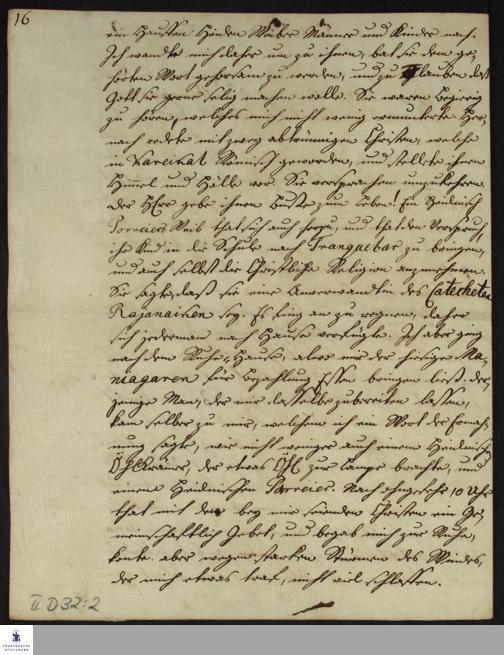 16
ein Hauffen Heiden Weiber Männer und Kinder nach.
Ich wandte mich daher um zu ihnen, bat sie dem ge-
hörten Wort gehorsam zu werden, und zu glauben daß
Gott sie gerne selig machen wolle. Sie waren begierig
zu hören, welches mich nicht wenig ermunterte. Her-
nach redete mit zwey abtrünnigen Christen, welche
in Careikal Römisch geworden, und stellete ihnen
Himmel und Hölle vor. Sie versprachen umzukehren.
Der HErr gebe ihnen Busse zum Leben. Ein Heidnisch
Porreier Weib that sich auch herzu, und that den Verspruch,
ihr Kind in die Schule nach Tranquebar zu bringen,
und auch selbst die Christliche Religion anzunehmen.
Sie sagte, daß sie eine Anverwandtin des Catecheten
Rajanaiken sey. Es fing an zu regnen, daher
sich jederman nach Hause verfügte. Ich aber ging
nach dem Ruhe-Hause, alwo mir der hiesige Ma-
niagaren für Bezahlung Essen bringen ließ. Der-
jenige Man, der mir dasselbe zubereiten lassen,
kam selber zu mir, welchem ich ein Wort der Ermah-
nung sagte, wie nicht weniger auch einem Heidnischen
Öhl Krämer, der etwas Öhl zur Lampe brachte, und
einem Heidnischen Parreier. Nach ohngefehr 10 Uhr
that mit den bey mir seienden Christen ein Ge-
meinschaftlich Gebet, und begab mich zur Ruhe,
konte aber wegen starken Stürmen des Windes,
der mich etwas traf, nicht viel schlaffen.
II D 32:2
FRANCKESCHE
STIFTUNGEN